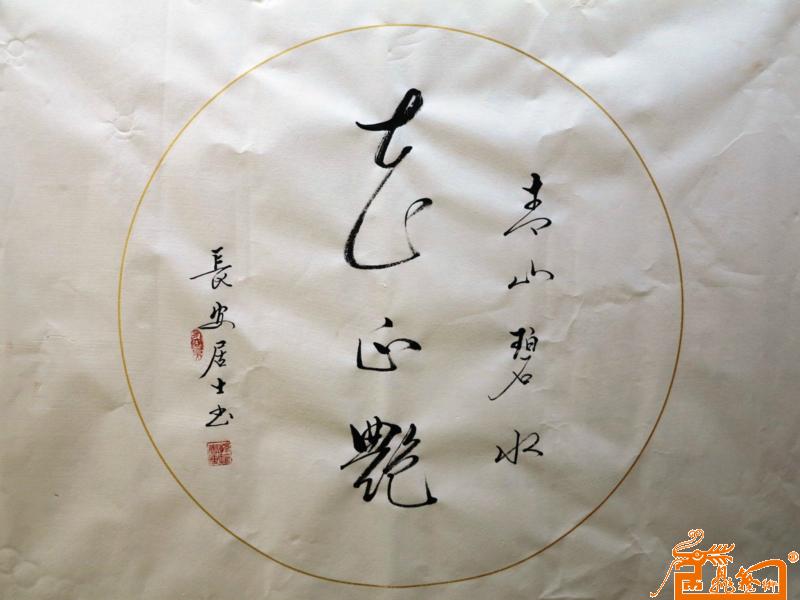 青山碧水
花正艷
長安居士书